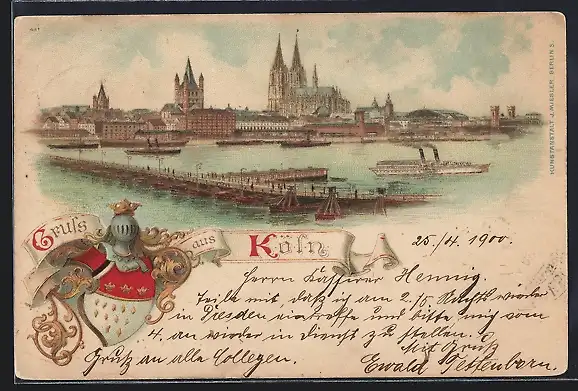 Gruss aus Köln
KUNSTANSTALT J. MIESLER, BERLIN S.
25./4. 1900.
Herrn Kassierer Hennig.
Teile mit daß ich am 2./5. Nachts wieder
in Dresden eintreffe und bitte mich vom
4. an wieder in Dienst zu stellen.
Mit Gruß
Gruß an alle Collegen.
Ewald